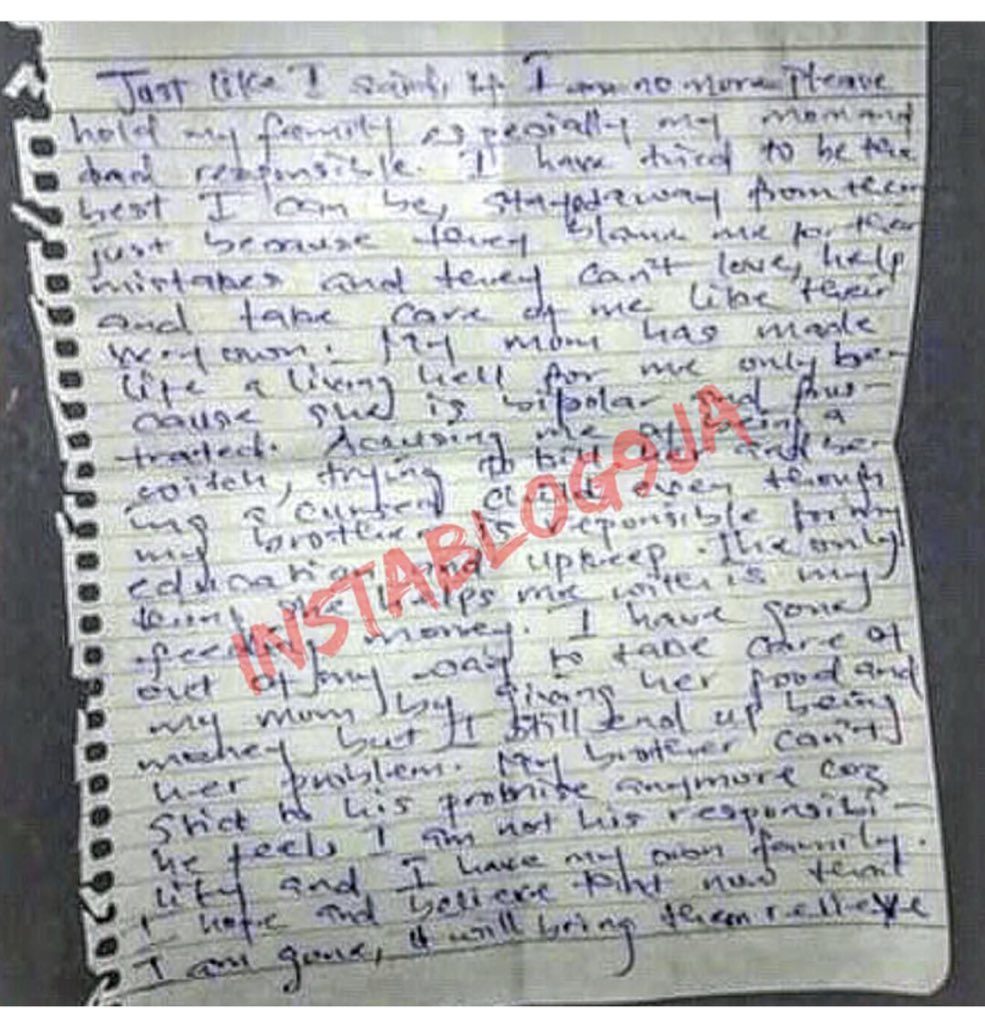 Just like I said, if I am no more please
hold my family especially my mom and
dad responsible. I have tried to be the
best I can be, stayed away from them
just because they blame me for their
mistakes and they can't love, help
and take care of me like their
very own. My mom has made
life a living hell for me only be-
cause she is bipolar and frus-
trated. Accusing me of being a
witch, trying to kill her and be-
ing a cursed child even though
my brother is reponsible for my
education and upkeep. The only
she helps me with is my
feeding money. I have gone
out of my way to take care of
my mom by giving her food and
money but I still end up being
her problem. My brother can't
stick to his promise anymore coz
he feels I am not his responsibi-
lity and I have my own family.
I hope and believe that now that
I am gone, it will bring them relieve
INSTABLOG9JA